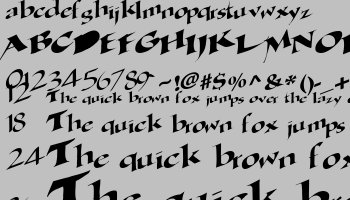 abcdefghijklmnopqrstuvwxyz
ABCDEFGHIJKLMNO
0123456789 ~!@#$%^&*()- +
12 The quick brown fox jumps over the lazy
18 The quick brown fox jumps
24 The quick brown fox
The quick b